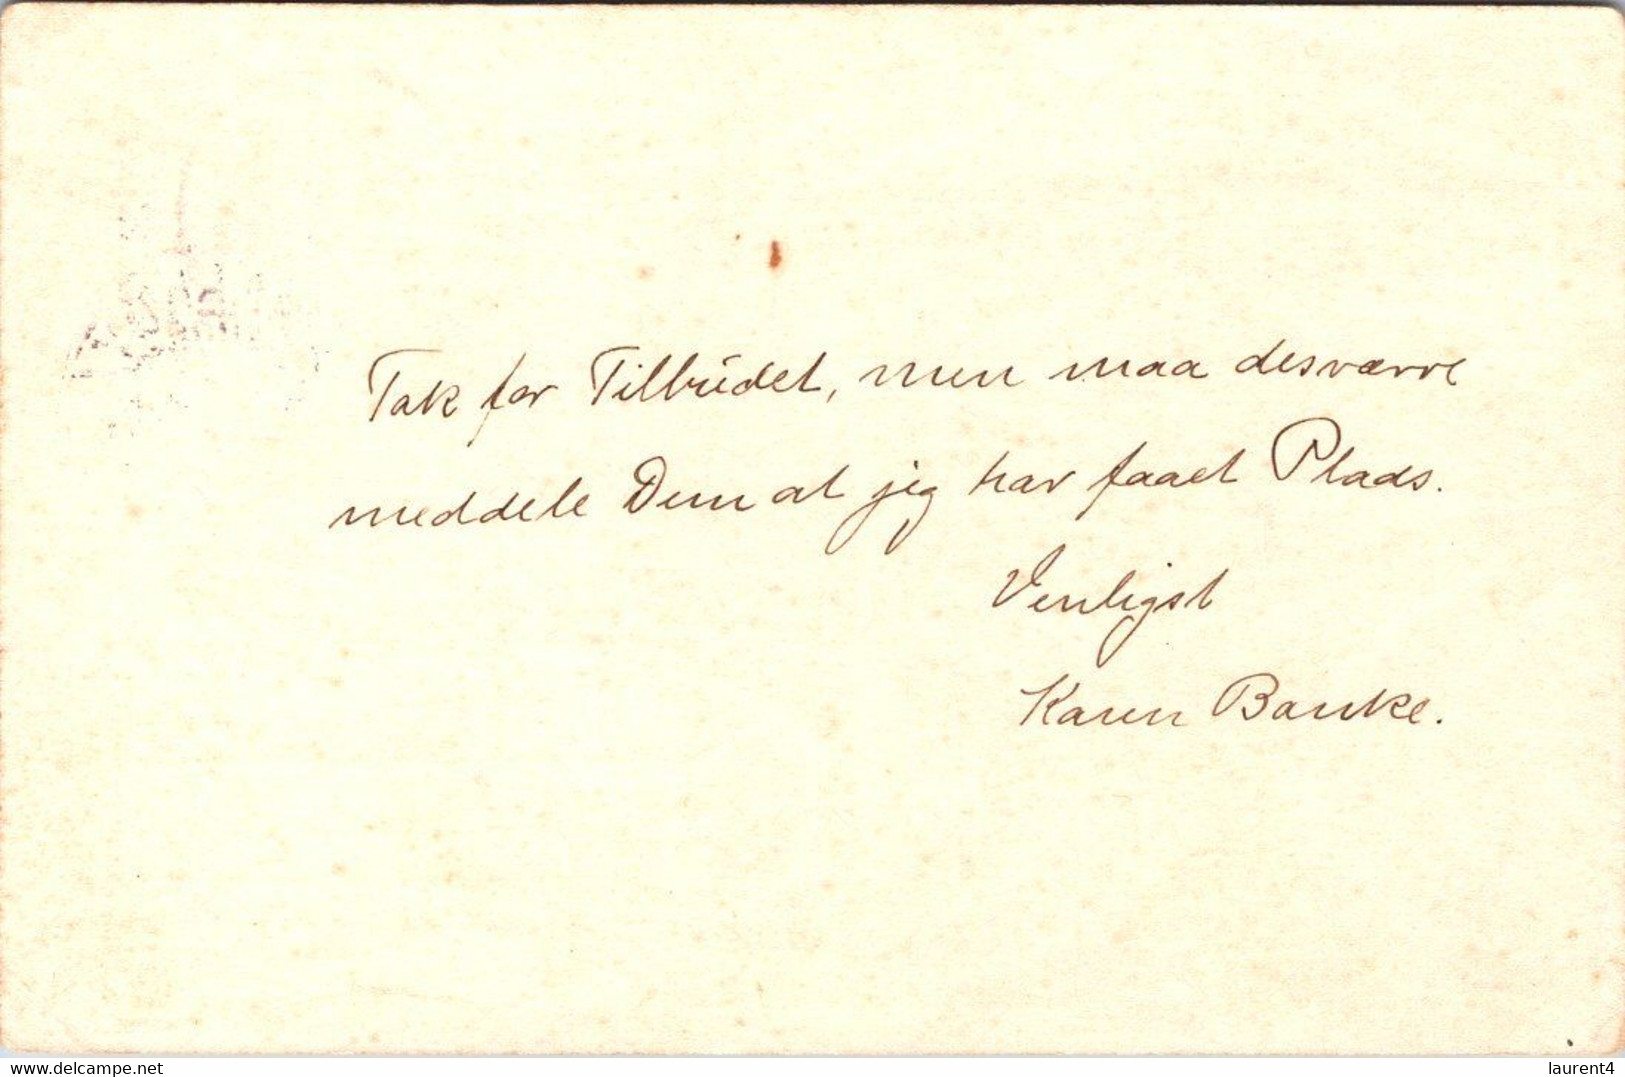 Tak for Tilbudet, men maa desværre
meddele Dem at jeg har faaet Plads.
Venligst
Karen Banke.
www.delcampe.net
laurent4